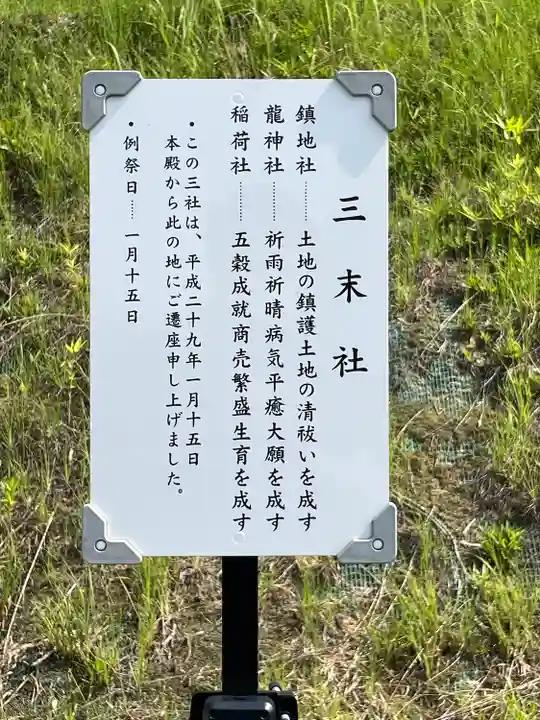 三末社
鎮地社……土地の鎮護土地の清祓いを成す
龍神社……祈雨祈晴病気平癒大願を成す
稲荷社……五穀成就商売繁盛生育を成す
・この三社は、平成二十九年一月十五日
本殿から此の地にご遷座申し上げました。
・例祭日……一月十五日